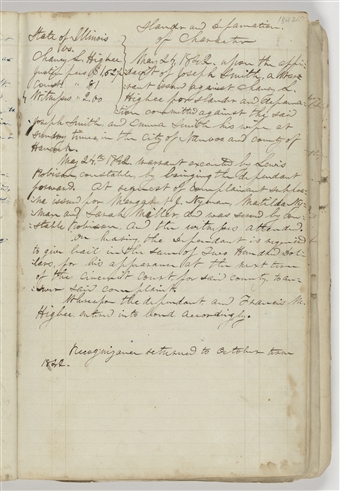 Slander and Defamation
State of Illinois of Character
vs.
Chancy L. Higbee May 24, 1842. upon the affi
Justices fees $1.52½ davit of Joseph Smith, a War
Const " $1 rant issued against Chancy L.
Witnesses " 2.00 Higbee for slander and defama
tion committed against the said
Joseph Smith and Emma Smith his wife, at
sundry times in the City of Nauvoo and county of
Hancock.
May 24th 1842 warrant executed by Lewis
Robison constable by bringing the defendant
forward. At request of complainant subpoe
na issued for Margaret J. Nyman, Matilda Ny
man and Sarah Miller and was served by con
stable Robison, and the witnesses attended.
On hearing the defendant is required
to give bail in the sum of Two Hundred Dol
lars, for his appearance at the next term
of the Circuit Court for said county to an
swer said complaint.
Whereupon the defendant and Francis M.
Higbee entered into bond accordingly.
Recognizance returned to October term
1842.